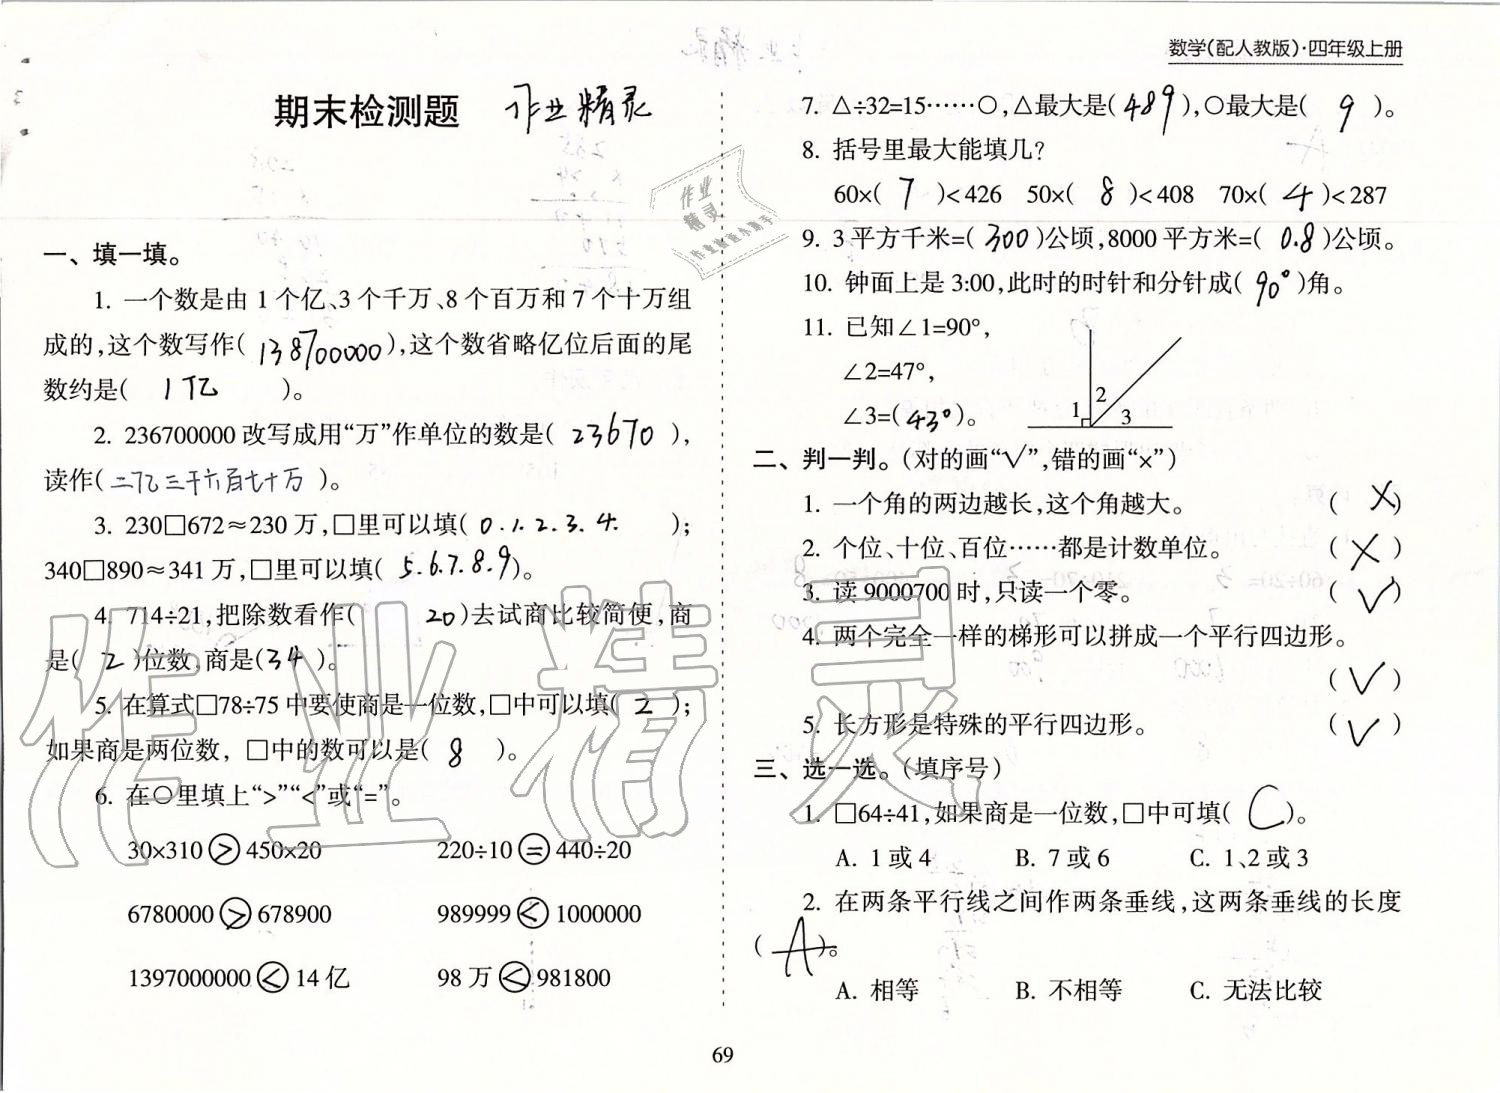 数学(配人教版)·四年级上册
期末检测题 作业精灵
一、填一填。
1. 一个数是由 1 个亿、3 个千万、8 个百万和 7 个十万组
成的,这个数写作( 138700000 ),这个数省略亿位后面的尾
数约是( 1亿 )。
2. 236700000 改写成用“万”作单位的数是( 23670 ),
读作( 二亿三千六百七十万 )。
3. 230□672≈230 万,□里可以填( 0.1.2.3.4. );
340□890≈341 万,□里可以填( 5.6.7.8.9 )。
4. 714÷21,把除数看作( 20 )去试商比较简便,商
是( 2 )位数,商是( 34 )。
5. 在算式□78÷75 中要使商是一位数,□中可以填( 2 );
如果商是两位数, □中的数可以是( 8 )。
6. 在○里填上“>”“<”或“=”。
30×310 > 450×20 220÷10 = 440÷20
6780000 > 678900 989999 < 1000000
1397000000 < 14 亿 98 万 < 981800
7. △÷32=15……○,△最大是( 489 ),○最大是( 9 )。
8. 括号里最大能填几?
60×( 7 )<426 50×( 8 )<408 70×( 4 )<287
9. 3 平方千米=( 300 )公顷,8000 平方米=( 0.8 )公顷。
10. 钟面上是 3:00,此时的时针和分针成( 90° )角。
11. 已知∠1=90°,
∠2=47°,
∠3=( 43° )。
1 2 3
二、判一判。(对的画“√”,错的画“×”)
1. 一个角的两边越长,这个角越大。 ( × )
2. 个位、十位、百位……都是计数单位。 ( × )
3. 读 9000700 时,只读一个零。 ( √ )
4. 两个完全一样的梯形可以拼成一个平行四边形。
( √ )
5. 长方形是特殊的平行四边形。 ( √ )
三、选一选。(填序号)
1. □64÷41,如果商是一位数,□中可填( C )。
A. 1 或 4 B. 7 或 6 C. 1、2 或 3
2. 在两条平行线之间作两条垂线,这两条垂线的长度
( A )。
A. 相等 B. 不相等 C. 无法比较
69
作业精灵
作业
精灵